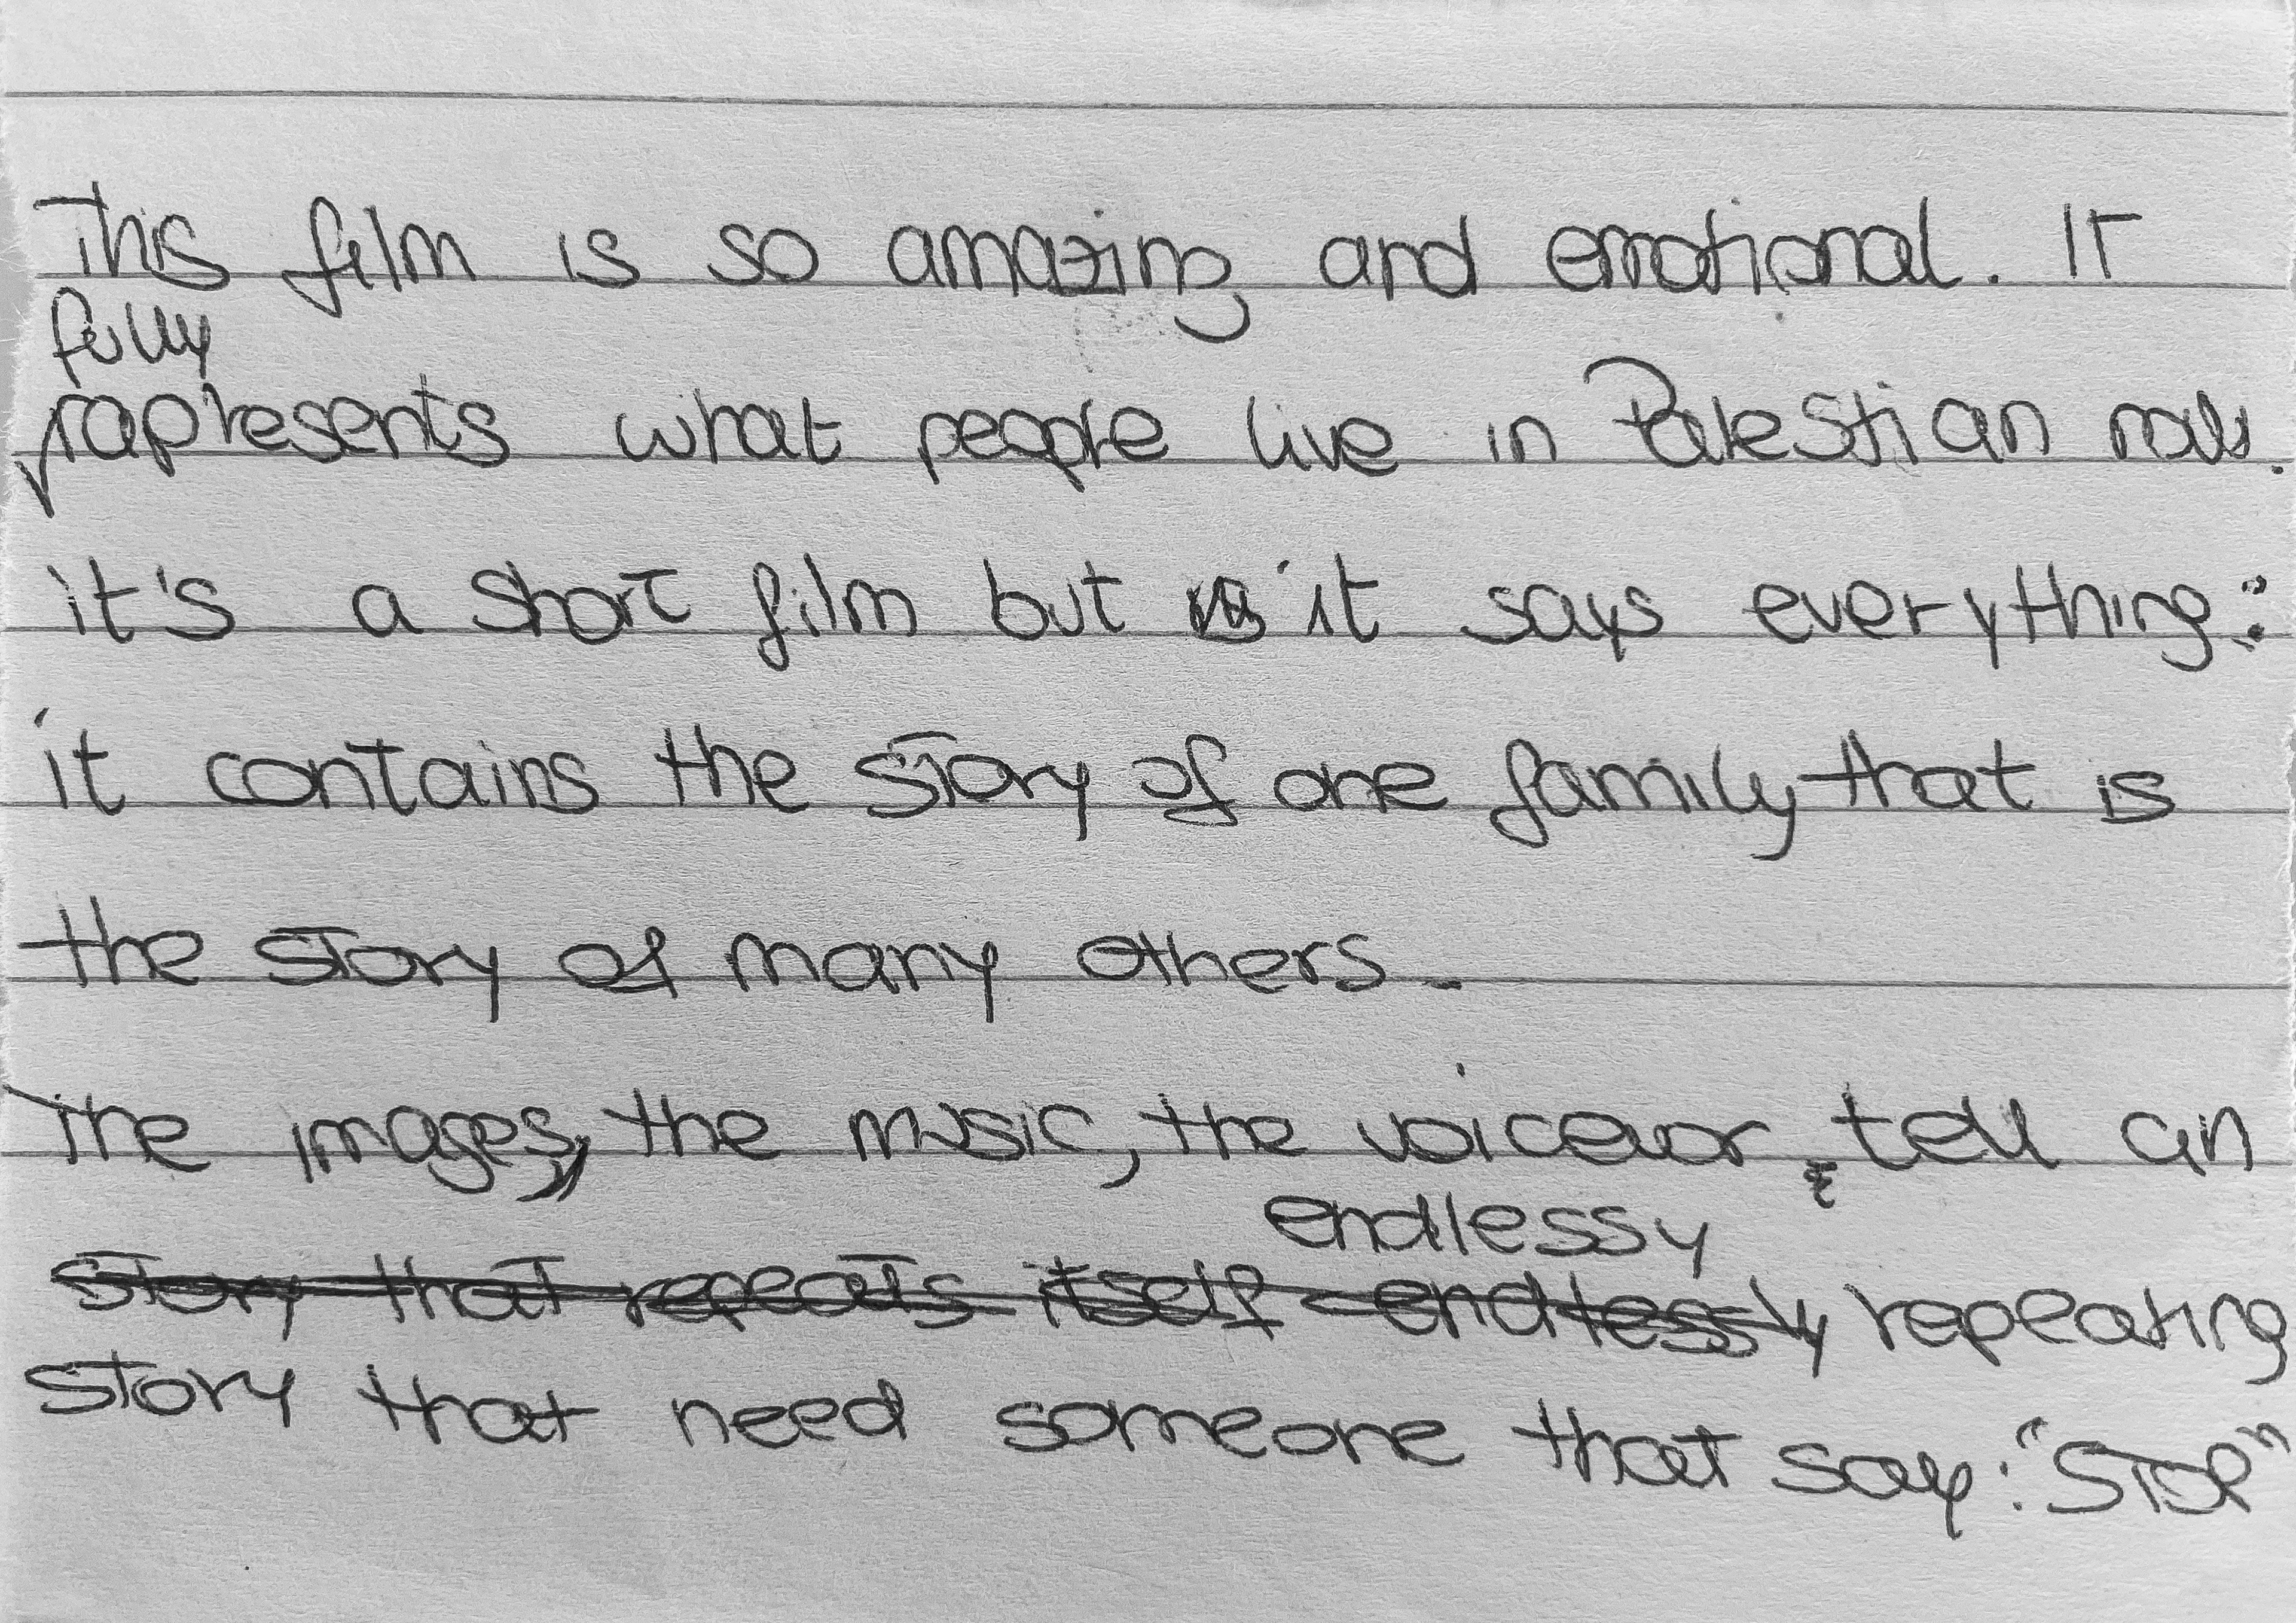 This film is so amazing and emotional. It
fully
rapresents what people live in Palestian
it's a short film but it says everything:
it contains the story of one family that is
the story of many others.
The images, the music, the voiceover, tell an
endlessy
story that repeats itself endlessly repeating
story that need someone that say: "STOP"